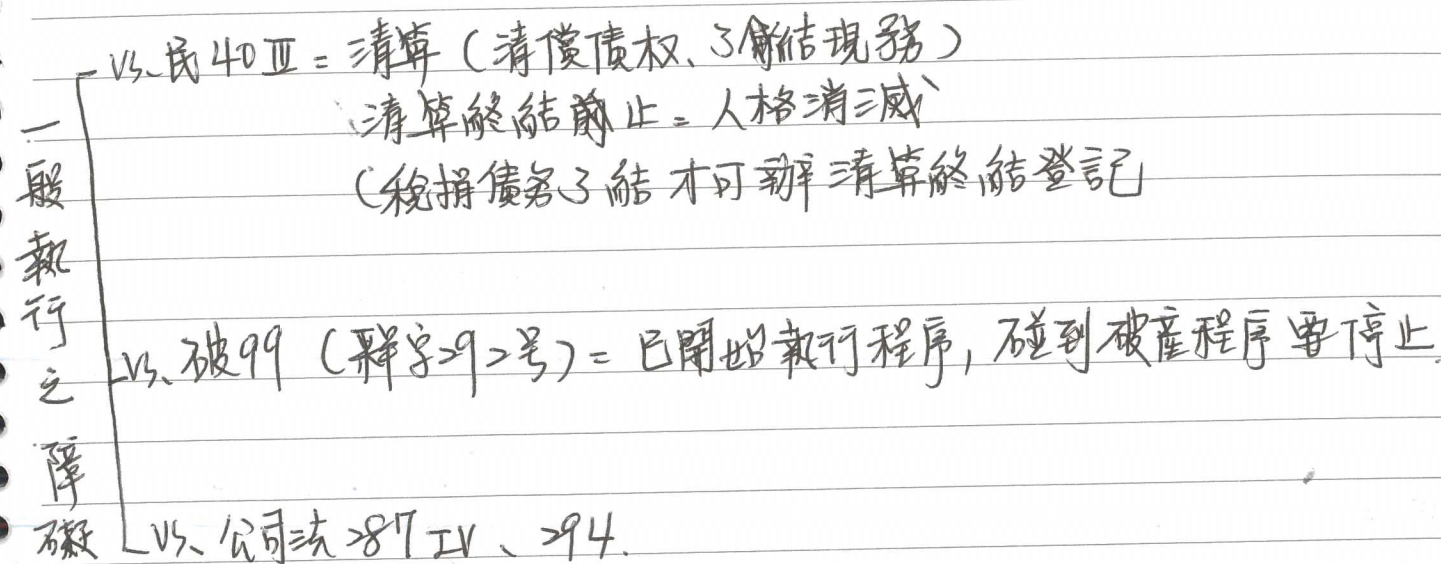 一般執行之障礙
vs、民40Ⅲ=清算(清償債权、了結現務)
清算終結前止=人格消滅
(稅捐債务了結才可辦清算終結登記
vs、破99(釋字292号)=已開始執行程序,碰到破產程序要停止.
vs、公司法287Ⅳ、294.